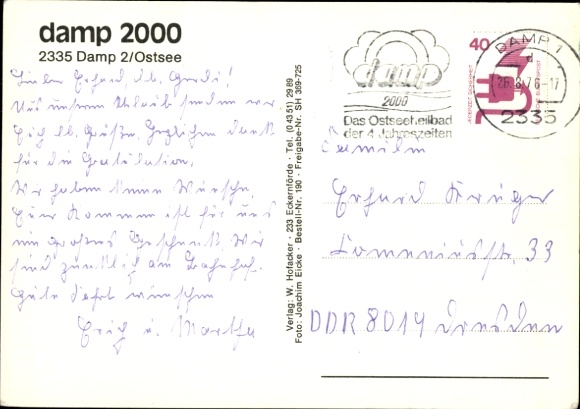 damp 2000
2335 Damp 2/Ostsee
Lieber Erhard, lb. Gerda!
Aus unserem Urlaub senden wir
Euch lb. Grüße. Herzlichen Dank
für die Gratulation.
Wir haben keine Wünsche.
Euer Kommen ist für uns
ein großes Geschenk. Wir
sind pünktlich am Bahnhof.
Gute Fahrt wünschen
Erich u. Martha
Verlag: W. Hofacker · 233 Eckernförde · Tel. (0 43 51) 29 89
Foto: Joachim Eicke · Bestell-Nr. 190 · Freigabe-Nr. SH 369-725
damp
2000
Das Ostseeheilbad
der 4 Jahreszeiten
40
DAMP 1
d
26.8.76-17
2335
Familie
Erhard Krüger
Comeniusstr. 33
DDR 8019 Dresden